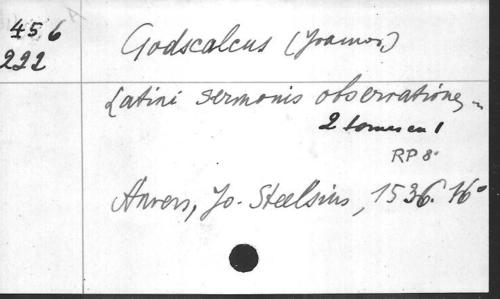 456
222
Godscalcus (Joannes)
Latini sermonis observationes
2 tomes en 1
RP 8°
Anvers, Jo. Steelsius, 1536. 16°